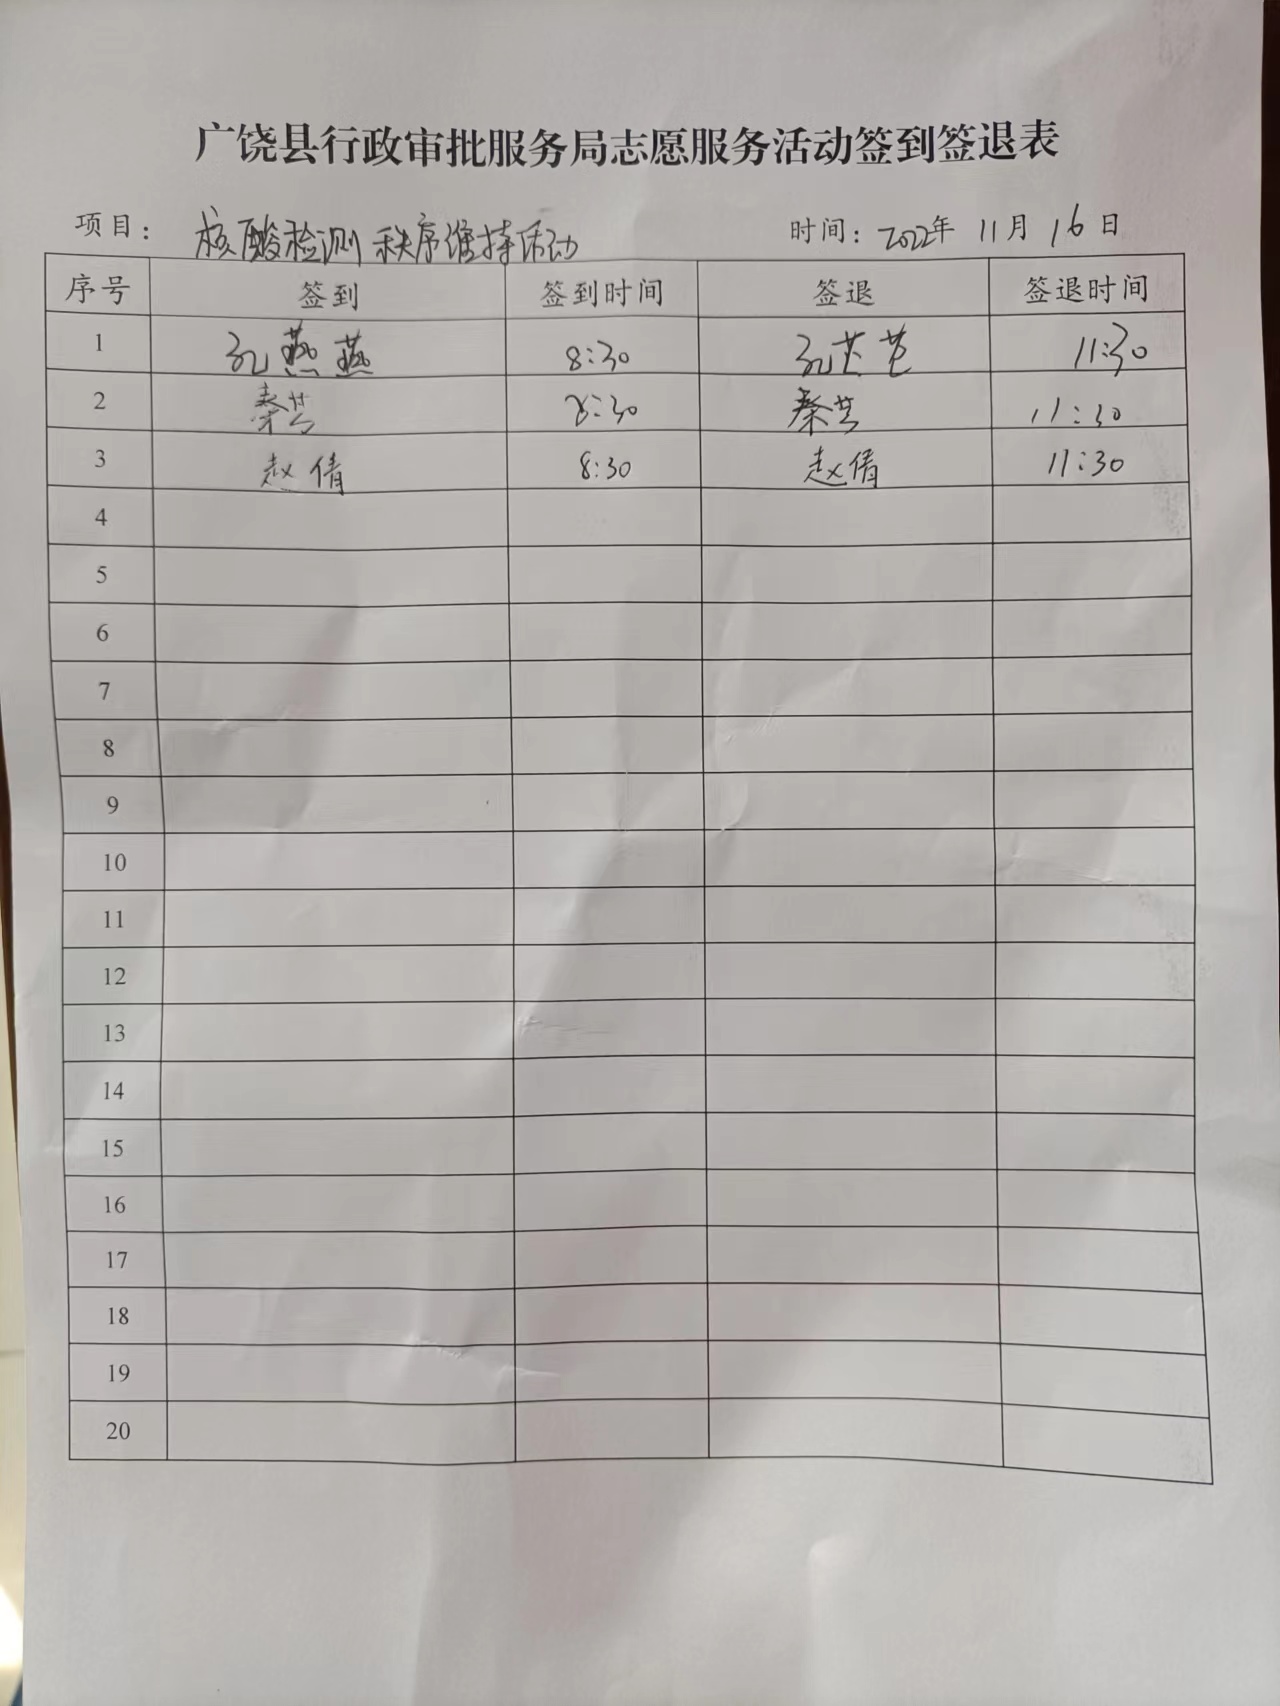 广饶县行政审批服务局志愿服务活动签到签退表
项目： 核酸检测秩序维持活动 时间：2022年 11月 16日
序号 签到 签到时间 签退 签退时间
1 孔燕燕 8:30 孔 11:30
2 秦芸 8:30 秦芸 11:30
3 赵倩 8:30 赵倩 11:30
4
5
6
7
8
9
10
11
12
13
14
15
16
17
18
19
20